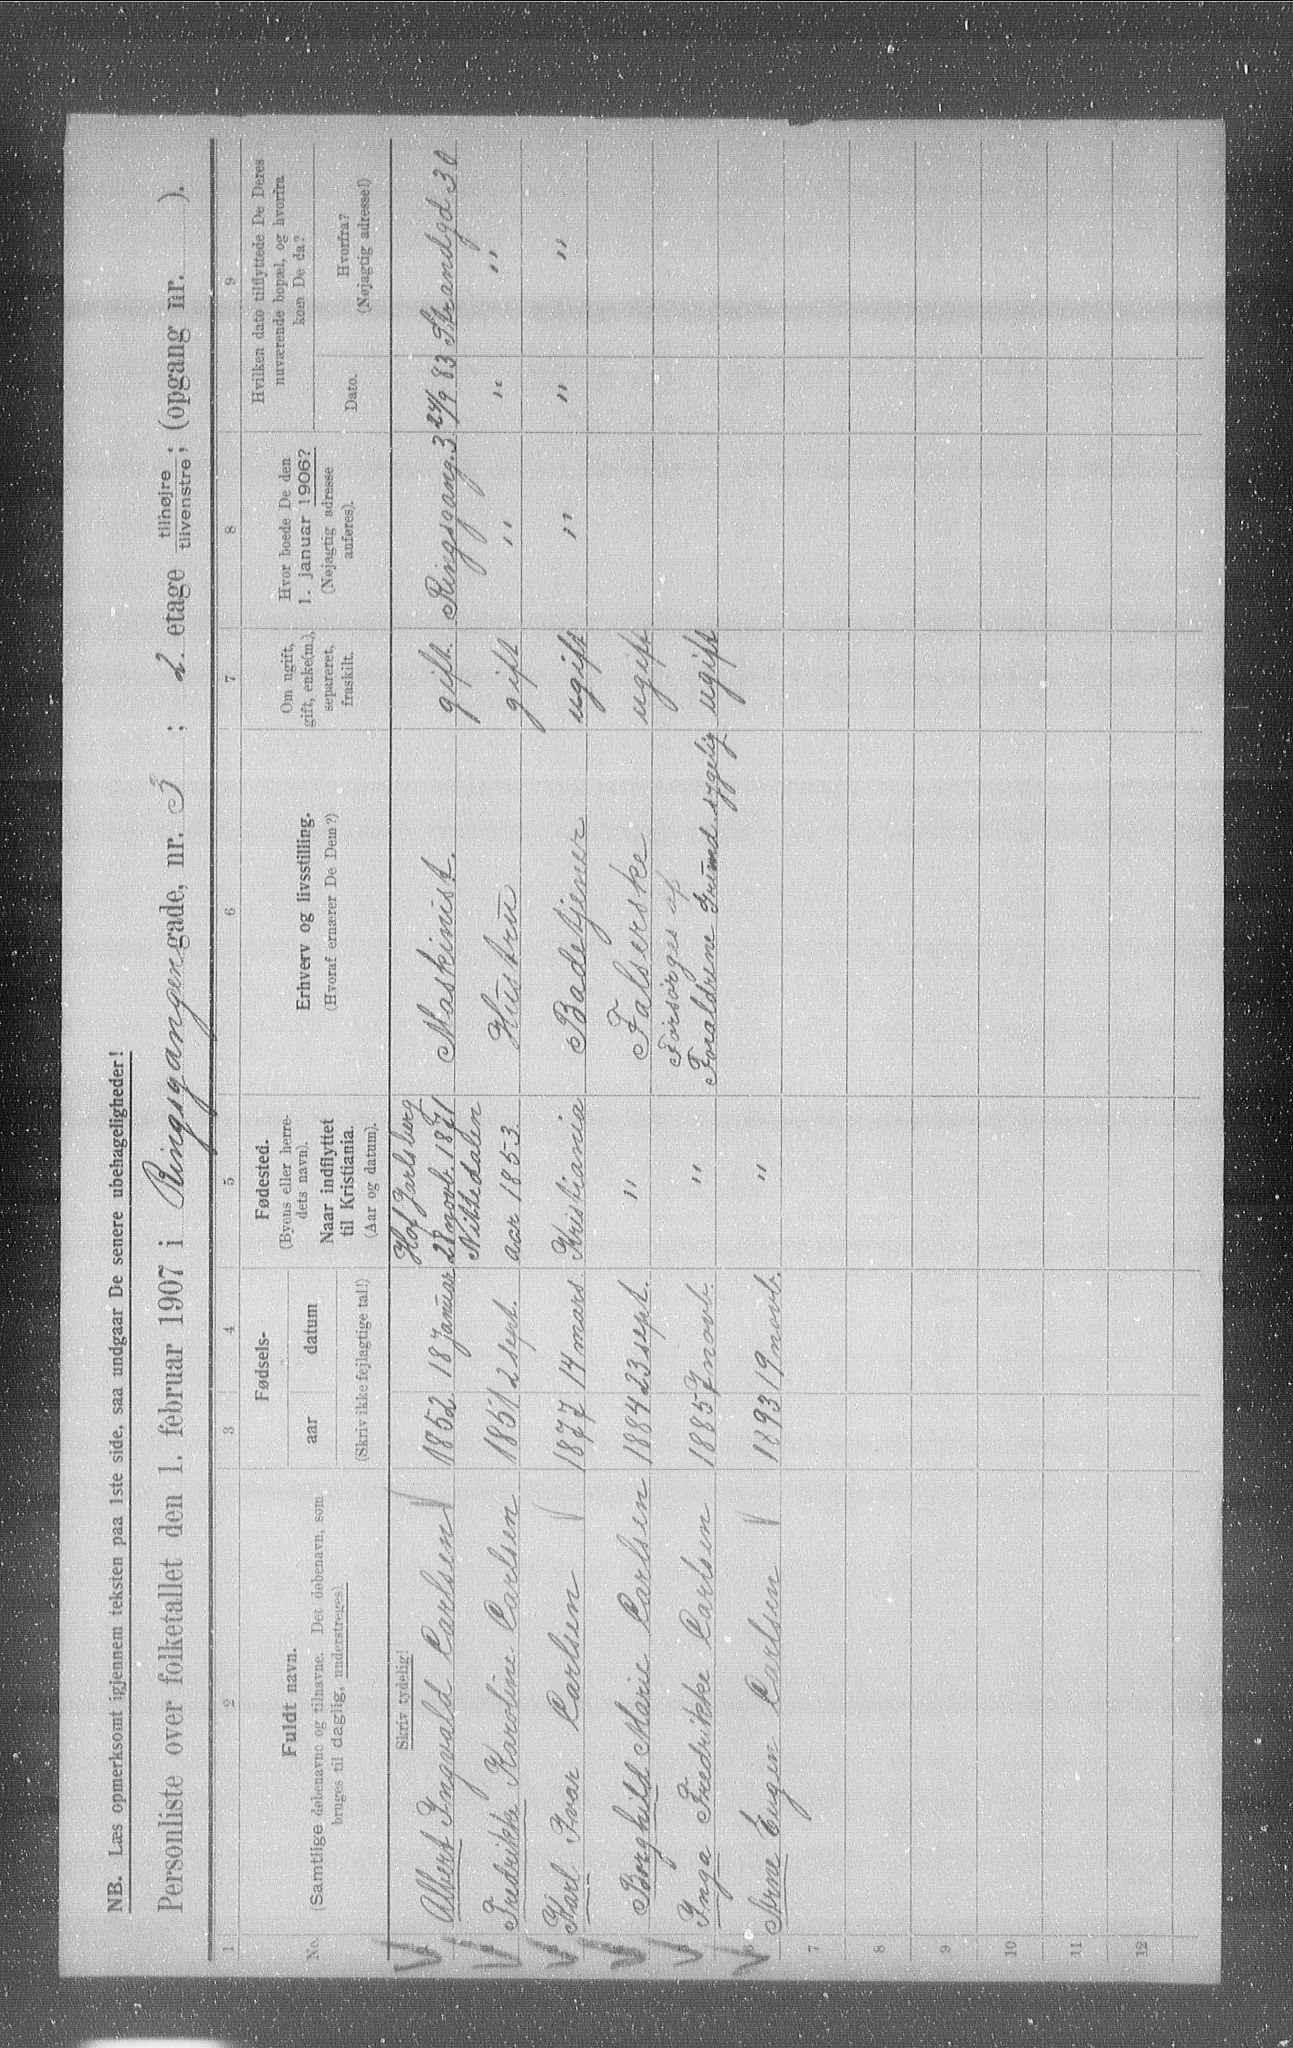 NB. Læs opmerksomt igjennem teksten paa 1ste side, saa undgaar De senere ubehageligheder!
Personliste over folketallet den 1. februar 1907 i Ringsgangen gade, nr. 3 ; 2. etage tilhøjre / tilvenstre ; (opgang nr. ).
1 2 3 4 5 6 7 8 9
No. Fuldt navn. (Samtlige døbenavne og tilnavne. Det døbenavn, som bruges til daglig, understreges).
Fødsels- aar datum (Skriv ikke fejlagtige tal!)
Fødested. (Byens eller herredets navn). Naar indflyttet til Kristiania. (Aar og datum).
Erhverv og livsstilling. (Hvoraf ernærer De Dem?)
Om ugift, gift, enke(m.), separeret, fraskilt.
Hvor boede De den 1. januar 1906? (Nøjagtig adresse anføres).
Hvilken dato tilflyttede De Deres nuværende bopæl, og hvorfra kom De da?
Dato. Hvorfra? (Nøjagtig adresse!)
Skriv tydelig!
Albert Ingvald Carlsen 1852 18 Januar Hof Jarlsberg 28 novb. 1871 Maskinist. gift. Ringsgang. 3 24/9 83 Strandgd 30
Fredrikke Karoline Carlsen 1851 2 sept. Nittedalen aar 1853 Hustru gift " " "
Karl Ivar Carlsen 1877 14 mars. Kristiania Badetjener ugift " " "
Borghild Marie Carlsen 1884 23 sept. " Falserske ugift
Inga Fredrikke Carlsen 1885 7 novb. " Forsørges af Foraldrene Grund sygelig ugift
6 Arne Eugen Carlsen 1893 19 novb. "
7
8
9
10
11
12